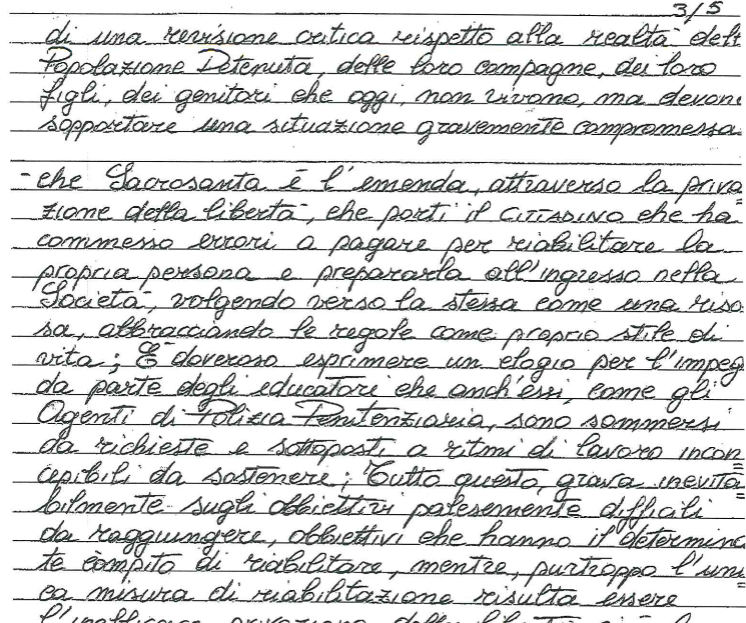 3/5
di una revisione critica rispetto alla realtà dell
Popolazione Detenuta, delle loro compagne, dei loro
figli, dei genitori che oggi, non vivono, ma devon
sopportare una situazione gravemente compromessa.
- che Sacrosanta è l'emenda, attraverso la priva=
zione della libertà, che porti il CITTADINO che ha
commesso errori a pagare per riabilitare la
propria persona e prepararla all'ingresso nella
Società, volgendo verso la stessa come una riso
sa, abbracciando le regole come proprio stile di
vita; È doveroso esprimere un elogio per l'impeg
da parte degli educatori che anch'essi, come gli
Agenti di Polizia Penitenziaria, sono sommersi
da richieste e sottoposti a ritmi di lavoro incon=
cepibili da sostenere; Tutto questo, grava inevita=
bilmente sugli obbiettivi palesemente difficili
da raggiungere, obbiettivi che hanno il determina
te compito di riabilitare, mentre, purtroppo l'uni=
ca misura di riabilitazione risulta essere